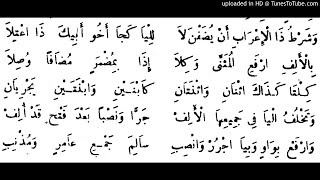 uploaded in HD @ TunesToTube.com
وَشَرْطُ ذَا الْإِعْرَابِ أَنْ يُضَفْنَ لَا لِلْيَا كَجَا أَخُو أَبِيكَ ذَا اعْتِلَا
بِالْأَلِفِ ارْفَعِ الْمُثَنَّى وَكِلَا إِذَا بِمُضْمَرٍ مُضَافًا وُصِلَا
كِلْتَا كَذَاكَ اثْنَانِ وَاثْنَتَانِ كَابْنَيْنِ وَابْنَتَيْنِ يَجْرِيَانِ
وَتَخْلُفُ الْيَا فِي جَمِيعِهَا الْأَلِفْ جَرًّا وَنَصْبًا بَعْدَ فَتْحٍ قَدْ أُلِفْ
وَارْفَعْ بِوَاوٍ وَبِيَا اجْرُرْ وَانْصِبِ سَالِمَ جَمْعِ عَامِرٍ وَمُذْنِبِ